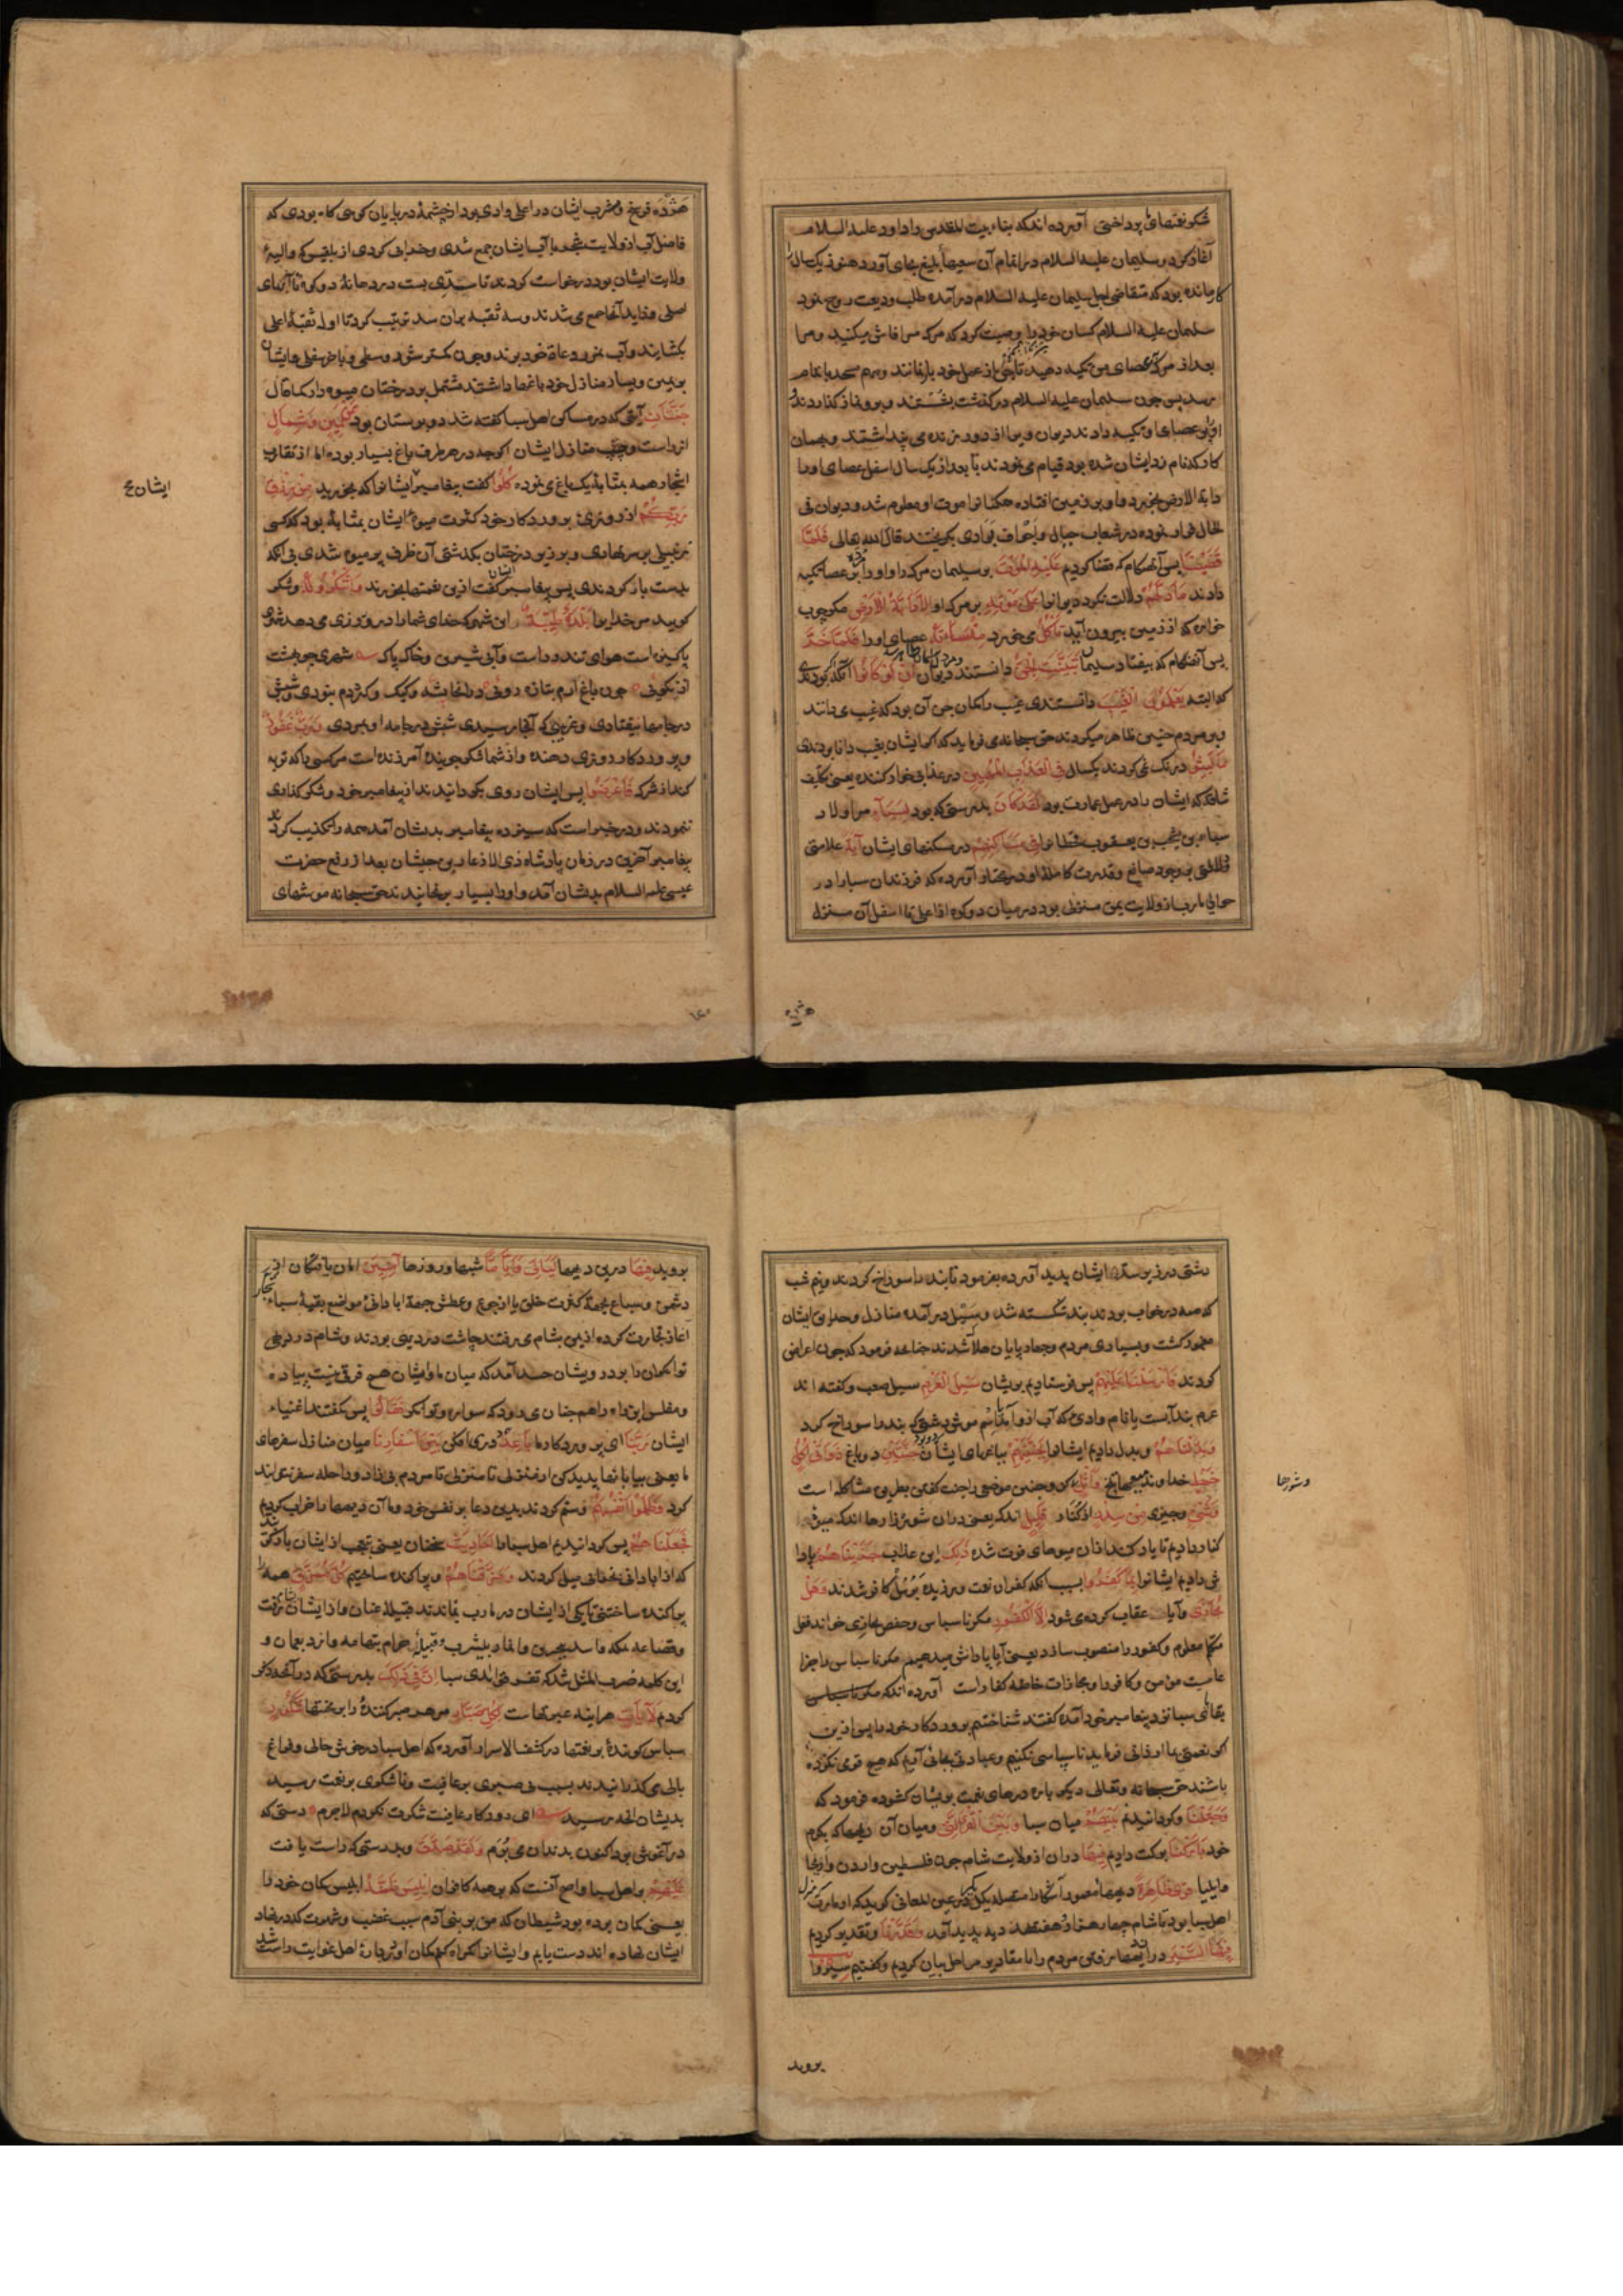 شکر نعتهای پرداختی آورده اند که بناء بیت المقدس را داود علیه السلام
آغاز کرد و سلیمان علیه السلام در اتمام آن سعیهاء بلیغ بجای آورد هنوز یک ساله
کار مانده بود که متقاضی اجل سلیمان علیه السلام در آمده طلب ودیعت روح نمود
سلیمان علیه السلام کسان خود را وصیت کرد که مرک مرا فاش میکنید و مرا
بعد از مرک بر عصای من تکیه دهید تا جن از عمل خود باز نمانند و مهم مسجد باتمام
رسد پس چون سلیمان علیه السلام در کذشت بشستند و برو نماز کذاردند و
او را بر عصای او تکیه دادند دیوان ویرا از دور زنده می پنداشتند و بهمان
کار که نامزد ایشان شده بود قیام می نمودند تا بعد از یک سال اسفل عصای او را
دابة الارض بخورد و او بر زمین افتاده همکنانرا موت او معلوم شد و دیوان فی
الحال فرار نموده در شعاب جبال و اجواف بوادی بکریختند قال الله تعالی فَلَمَّا
قَضَیْنَا پس آنهنکام که قضا کردیم عَلَیْهِ الْمَوْتَ بر سلیمان مرک را و او را بر عصا تکیه
دادند مَا دَلَّهُمْ دلالت نکرد دیوانرا عَلَی مَوْتِهِ بر مرک او اِلَّا دَابَّةُ الْاَرْضِ مکر چوب
خواره که از زمین بیرون آید تَأْکُلُ می خورد مِنْسَأَتَهُ عصای او را فَلَمَّا خَرَّ
پس آنهنکام که بیفتاد سلیمان تَبَیَّنَتِ الْجِنُّ دانستند دیوان اَنْ لَوْ کَانُوا آنکه کر بودندی
که البته یَعْلَمُونَ الْغَیْبَ دانستندی غیب را کمان جن آن بود که غیب می دانند
و بر مردم چنین ظاهر میکردند حق سبحانه می فرماید که اکر ایشان بغیب دانا بودندی
مَا لَبِثُوا درنک نمی کردند یکسال فِی الْعَذَابِ الْمُهِینِ در عذابی خوار کننده یعنی تکلیف
شاقه که ایشان را در عمل عمارت بود لَقَدْ کَانَ بدرستی که بود لِسَبَاءٍ مر اولاد
سباء بن یشجب بن یعرب بن قحطانرا فِی مَسَاکِنِهِمْ در مسکنهای ایشان آیَةٌ علامتی
دلالتی بر وجود صانع و قدرت کامله او در مختار آورده که فرزندان سبا را در
حوالی مارب از ولایت یمن منزلی بود در میان دو کوه از اعلی تا اسفل آن منزل
هژده
هژده فرسخ و شرب ایشان در اعلی وادی بود از چشمهٔ در پایان کوهی کاه بودی که
فاضل آب از ولایت شجر با آب ایشان جمع شدی و خرابی کردی از بلقیس که والیهٔ
ولایت ایشان بود درخواست کردند تا سدی بست در دهانهٔ دو کوه تا آبهای
اصلی و فاید آنجا جمع می شدند و سه ثقبه بران سد ترتیب کرد تا اول ثقبهٔ اعلی
بکشایند و آب بمزروعات خود برند و چون کمتر شود وسطی و باخر سفلی و ایشان
بر یمین و یسار منازل خود باغها داشتند مشتمل بر درختان میوه دار کما قال
جَنَّتَانِ آیتی که در مساکن اهل سبا کفته شد دو بوستان بود عَنْ یَمِینٍ وَشِمَالٍ
از راست و چپ منازل ایشان اکرچه در هر طرف باغ بسیار بوده اما از تقارب
اشجار همه بمثابهٔ یک باغ می نموده کُلُوا کفت پیغامبر ایشانرا که بخورید مِنْ رِزْقِ
رَبِّکُمْ از روزی پروردکار خود کثرت میوهٔ ایشان بمثابهٔ بود که کسی
زنبیلی بر سر نهادی و بر زیر درختان بکذشتی آن ظرف پر میوه شدی بی آنکه
بدست باز کردندی پس پیغامبر ایشان کفت ازین نعمتها بخورند وَاشْکُرُوا لَهُ و شکر
کویید مر خدایرا بَلْدَةٌ طَیِّبَةٌ این شهر که خدای شما را در و روزی می دهد شهری
پاکیزه است هوای تندرست و آبی شیرین و خاک پاک شهری چو بهشت
از نکویی چون باغ ارم بتازه رویی در انجا پشه و کیک و کژدم نبودی و شپش
در جامها نیفتادی و غریبی که آنجا رسیدی شپش در جامه او بمردی وَرَبٌّ غَفُورٌ
و پروردکار روزی دهنده و از شما شکر جوینده آمرزنده است مر کسی را که توبه
کند از شرک فَاَعْرَضُوا پس ایشان روی بکردانیدند از پیغامبر خود و شکر کذاری
ننمودند و در خبر است که سیزده پیغامبر بدیشان آمد همه را تکذیب کردند
پیغامبر آخرین در زمان پادشاه ذی الاذعار بن جیشان بعد از رفع حضرت
عیسی علیه السلام بدیشان آمد و او را بسیار برنجانیدند حق سبحانه موشهای
ایشان صح
دشتی در زیر سد ایشان پدید آورده بفرمود تا بند را سوراخ کردند و نیم شب
که همه در خواب بودند بند شکسته شد و سیل در آمده منازل و حدایق ایشان
مغمور کشت و بسیاری مردم و چهارپایان هلاک شدند چنانچه فرمود که چون اعراض
کردند فَاَرْسَلْنَا عَلَیْهِمْ پس فرستادیم بریشان سَیْلَ الْعَرِمِ سیل صعب و کفته اند
عرم بند آبست یا نام وادی که آب ازو آمد یا اسم موش دشتی که بند را سوراخ کرد
وَبَدَّلْنَاهُمْ و بدل دادیم ایشانرا بِجَنَّتَیْهِمْ بباغهای ایشان جَنَّتَیْنِ دو باغ ذَوَاتَیْ اُکُلٍ
خَمْطٍ خداوند میوهاء تلخ وَاَثْلٍ و کز و چنین موضعی را جنت کفتن بطریق مشاکله است
وَشَیْءٍ و چیزی مِنْ سِدْرٍ از کنار قَلِیلٍ اندک یعنی دران شوره زارها اندک میوهٔ
کنار دادیم تا یاد کنند ازان میوهای فوت شده ذَلِکَ این عذاب جَزَیْنَاهُمْ پاداش
دادیم ایشانرا بِمَا کَفَرُوا بسبب آنکه کفران نعمت ورزیدند برسل کافر شدند وَهَلْ
نُجَازِی و آیا عقاب کرده می شود اِلَّا الْکَفُورَ مکر ناسپاس و حفص نجازی خواند فعل
متکلم معلوم و کفور را منصوب سازد یعنی آیا پاداش میدهیم مکر ناسپاس را جزا
عامست مؤمن و کافر را و مجازات خاصه کفار است آورده اند که
بقایای سبا نزد پیغامبر خود آمده کفتند شناختیم پروردکار خود را پس ازین
کر نعمتی بما ارزانی فرماید ناسپاسی نکنیم و عبادتی بجای آریم که هیچ قوم نکرده
باشند حق سبحانه و تعالی دیکر باره درهای نعمت بریشان کشوده فرمود که
وَجَعَلْنَا و کردانیدیم بَیْنَهُمْ میان سبا وَبَیْنَ الْقُرَی الَّتِی و میان آن دیهها که بکرم
خود بَارَکْنَا برکت دادیم فِیهَا دران از ولایت شام چون فلسطین و اردن و اریحا
و ایلیا قُرًی ظَاهِرَةً دیهها معمور آشکارا متصله بیکدیکر در عین المعانی کوید که از مارب منزل
اهل سبا بود تا شام چهار هزار و هفتصد دیه پدید آمد وَقَدَّرْنَا و تقدیر کردیم
فِیهَا السَّیْرَ دران دیهها رفتن مردم را تا مقادیر مراحل بیان کردیم و کفتیم سِیرُوا
بروید
و شورها
بروید فِیهَا درین دیهها لَیَالِیَ وَاَیَّامًا شبها و روزها آمِنِینَ امان یافتکان از
دشمن و سباع بجهة کثرت خلق یا از جوع و عطش بجهة ابادانی مواضع بقیهٔ سباء
اغاز تجارت کرده ازیمن بشام می رفتند چاشت در دیهی بودند و شام در دیهی
توانکران را بر درویشان حسد آمد که میان ما و ایشان هیچ فرقی نیست پیاده
و مفلس این راه را همچنان می رود که سواره و توانکر فَقَالُوا پس کفتند اغنیاء
ایشان رَبَّنَا ای پروردکار ما بَاعِدْ دوری افکن بَیْنَ اَسْفَارِنَا میان منازل سفرهای
ما یعنی بیابانها پدید کن از منزلی تا منزلی تا مردم بی زاد و راحله سفر نتوانند
کرد وَظَلَمُوا اَنْفُسَهُمْ و ستم کردند بدین دعا بر نفس خود و ما آن دیهها را خراب کردیم
فَجَعَلْنَاهُمْ پس کردانیدیم اهل سبا را اَحَادِیثَ سخنان یعنی تعجب از ایشان باز کویند
که از ابادانی بخرابی میل کردند وَمَزَّقْنَاهُمْ و پراکنده ساختیم کُلَّ مُمَزَّقٍ همه
پراکنده ساختنی تا یکی از ایشان در مارب نماندند قبیلهٔ غسان از ایشان بشام رفت
و قضاعه بمکه و اسد ببحرین و انمار بیثرب و قبیلهٔ جزام بتهامه و ازد بعمان و
این کلمه ضرب المثل شد که تفرقوا ایدی سبا اِنَّ فِی ذَلِکَ بدرستی که درآنچه ذکر
کردیم لَآیَاتٍ هراینه عبرتهاست لِکُلِّ صَبَّارٍ مر هر صبر کنندهٔ را بر محنتها شَکُورٍ
سپاس کویندهٔ بر نعمتها در کشف الاسرار آورده که اهل سبا در خوش حالی و فراغ
بالی می کذرانیدند بسبب بی صبری بر عافیت و ناشکری بر نعمت رسید
بدیشان انچه رسید ای روزکار عافیت شکرت نکردم لاجرم دستی که
در آغوش بود اکنون بدندان می برم وَلَقَدْ صَدَّقَ و بدرستی که راست یافت
عَلَیْهِمْ بر اهل سبا و اصح آنست که بر همه کافران اِبْلِیسُ ظَنَّهُ ابلیس کمان خود را
یعنی کمان برده بود شیطان که من بر بنی آدم بسبب غضب و شهوت که در نهاد
ایشان نهاده اند دست یابم و ایشانرا کمراه کنم کمان او دربارهٔ اهل غوایت راست شد